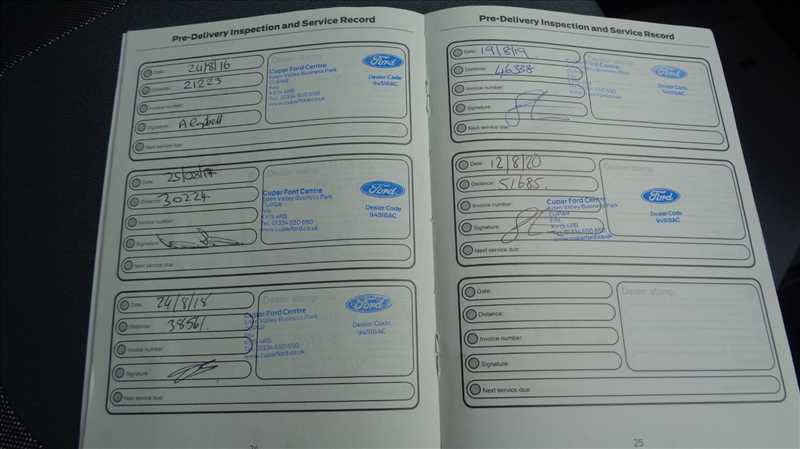 Pre-Delivery Inspection and Service Record
Date: 24/8/16
Distance: 21223
Invoice number:
Signature: A Campbell
Next service due:
Cupar Ford Centre
Eden Valley Business Park
CUPAR
Fife
KY15 4RB
Tel. 01334 650 650
www.cuparford.co.uk
Ford
Dealer Code
94516AC
Date: 25/08/17
Distance: 30224
Invoice number:
Signature:
Next service due:
Cupar Ford Centre
Eden Valley Business Park
CUPAR
Fife
KY15 4RB
Tel. 01334 650 650
www.cuparford.co.uk
Ford
Dealer Code
94516AC
Date: 24/8/18
Distance: 38561.
Invoice number:
Signature:
Next service due:
Dealer stamp
Cupar Ford Centre
Eden Valley Business Park
CUPAR
KY15 4RB
Tel. 01334 650 650
www.cuparford.co.uk
Ford
Dealer Code
94516AC
Pre-Delivery Inspection and Service Record
Date: 19/8/19
Distance: 46338
Invoice number:
Signature:
Next service due:
Ford
Dealer Code
94516AC
Date: 12/8/20
Distance: 51685
Invoice number:
Signature:
Next service due:
Dealer stamp
Cupar Ford Centre
Eden Valley Business Park
CUPAR
Fife
KY15 4RB
Tel. 01334 650 650
www.cuparford.co.uk
Ford
Dealer Code
94516AC
Date:
Distance:
Invoice number:
Signature:
Next service due:
Dealer stamp
25